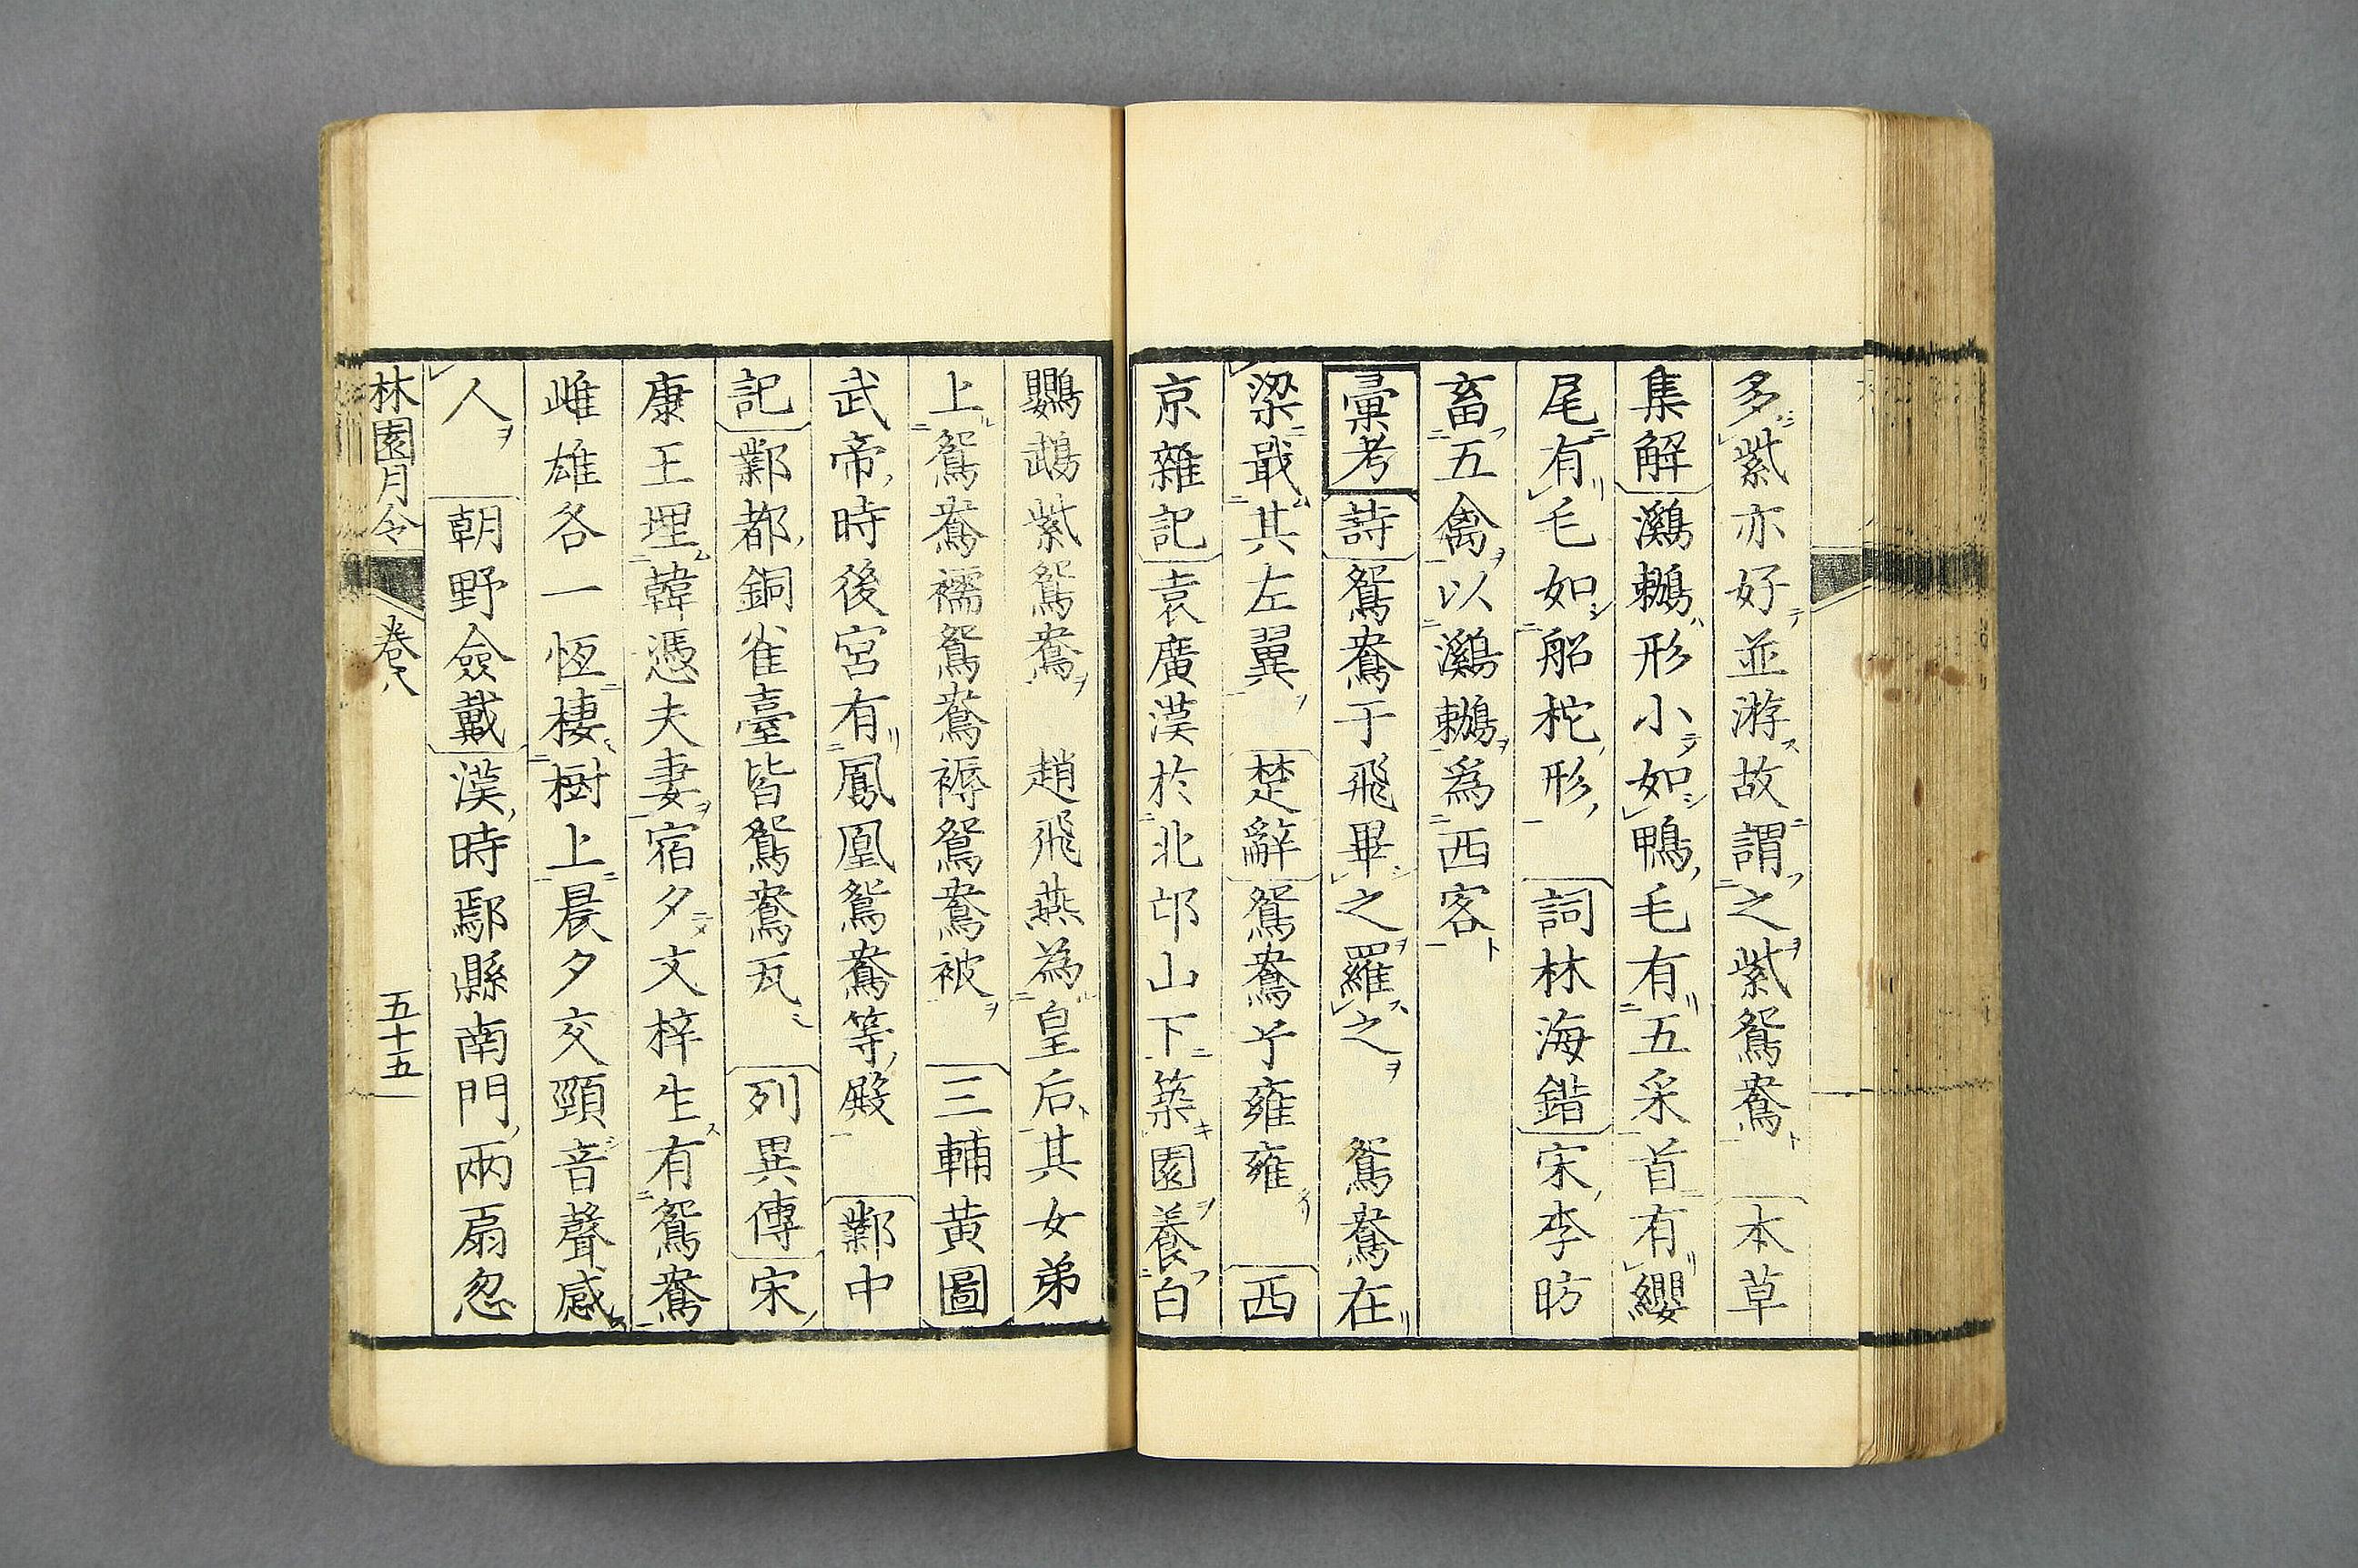 多紫亦好並游故謂之紫鴛鴦 本草
集解 鸂鷘形小如鴨毛有五采首有纓
尾有毛如船柁形 詞林海錯 宋李昉
畜五禽以鸂鷘爲西客
彙考 詩 鴛鴦于飛畢之羅之 鴛鴦在
梁戢其左翼 楚辭 鴛鴦兮雍雍 西
京雜記 袁廣漢於北邙山下築園養白
鸚鵡紫鴛鴦 趙飛燕為皇后其女弟
上鴛鴦襦鴛鴦褥鴛鴦被 三輔黄圖
武帝時後宮有鳳凰鴛鴦等殿 鄴中
記 鄴都銅雀臺皆鴛鴦瓦 列異傳 宋
康王埋韓憑夫妻宿夕文梓生有鴛鴦
雌雄各一恆棲樹上晨夕交頸音聲感
人 朝野僉戴 漢時鄢縣南門兩扇忽
林園月令 卷八 五十五